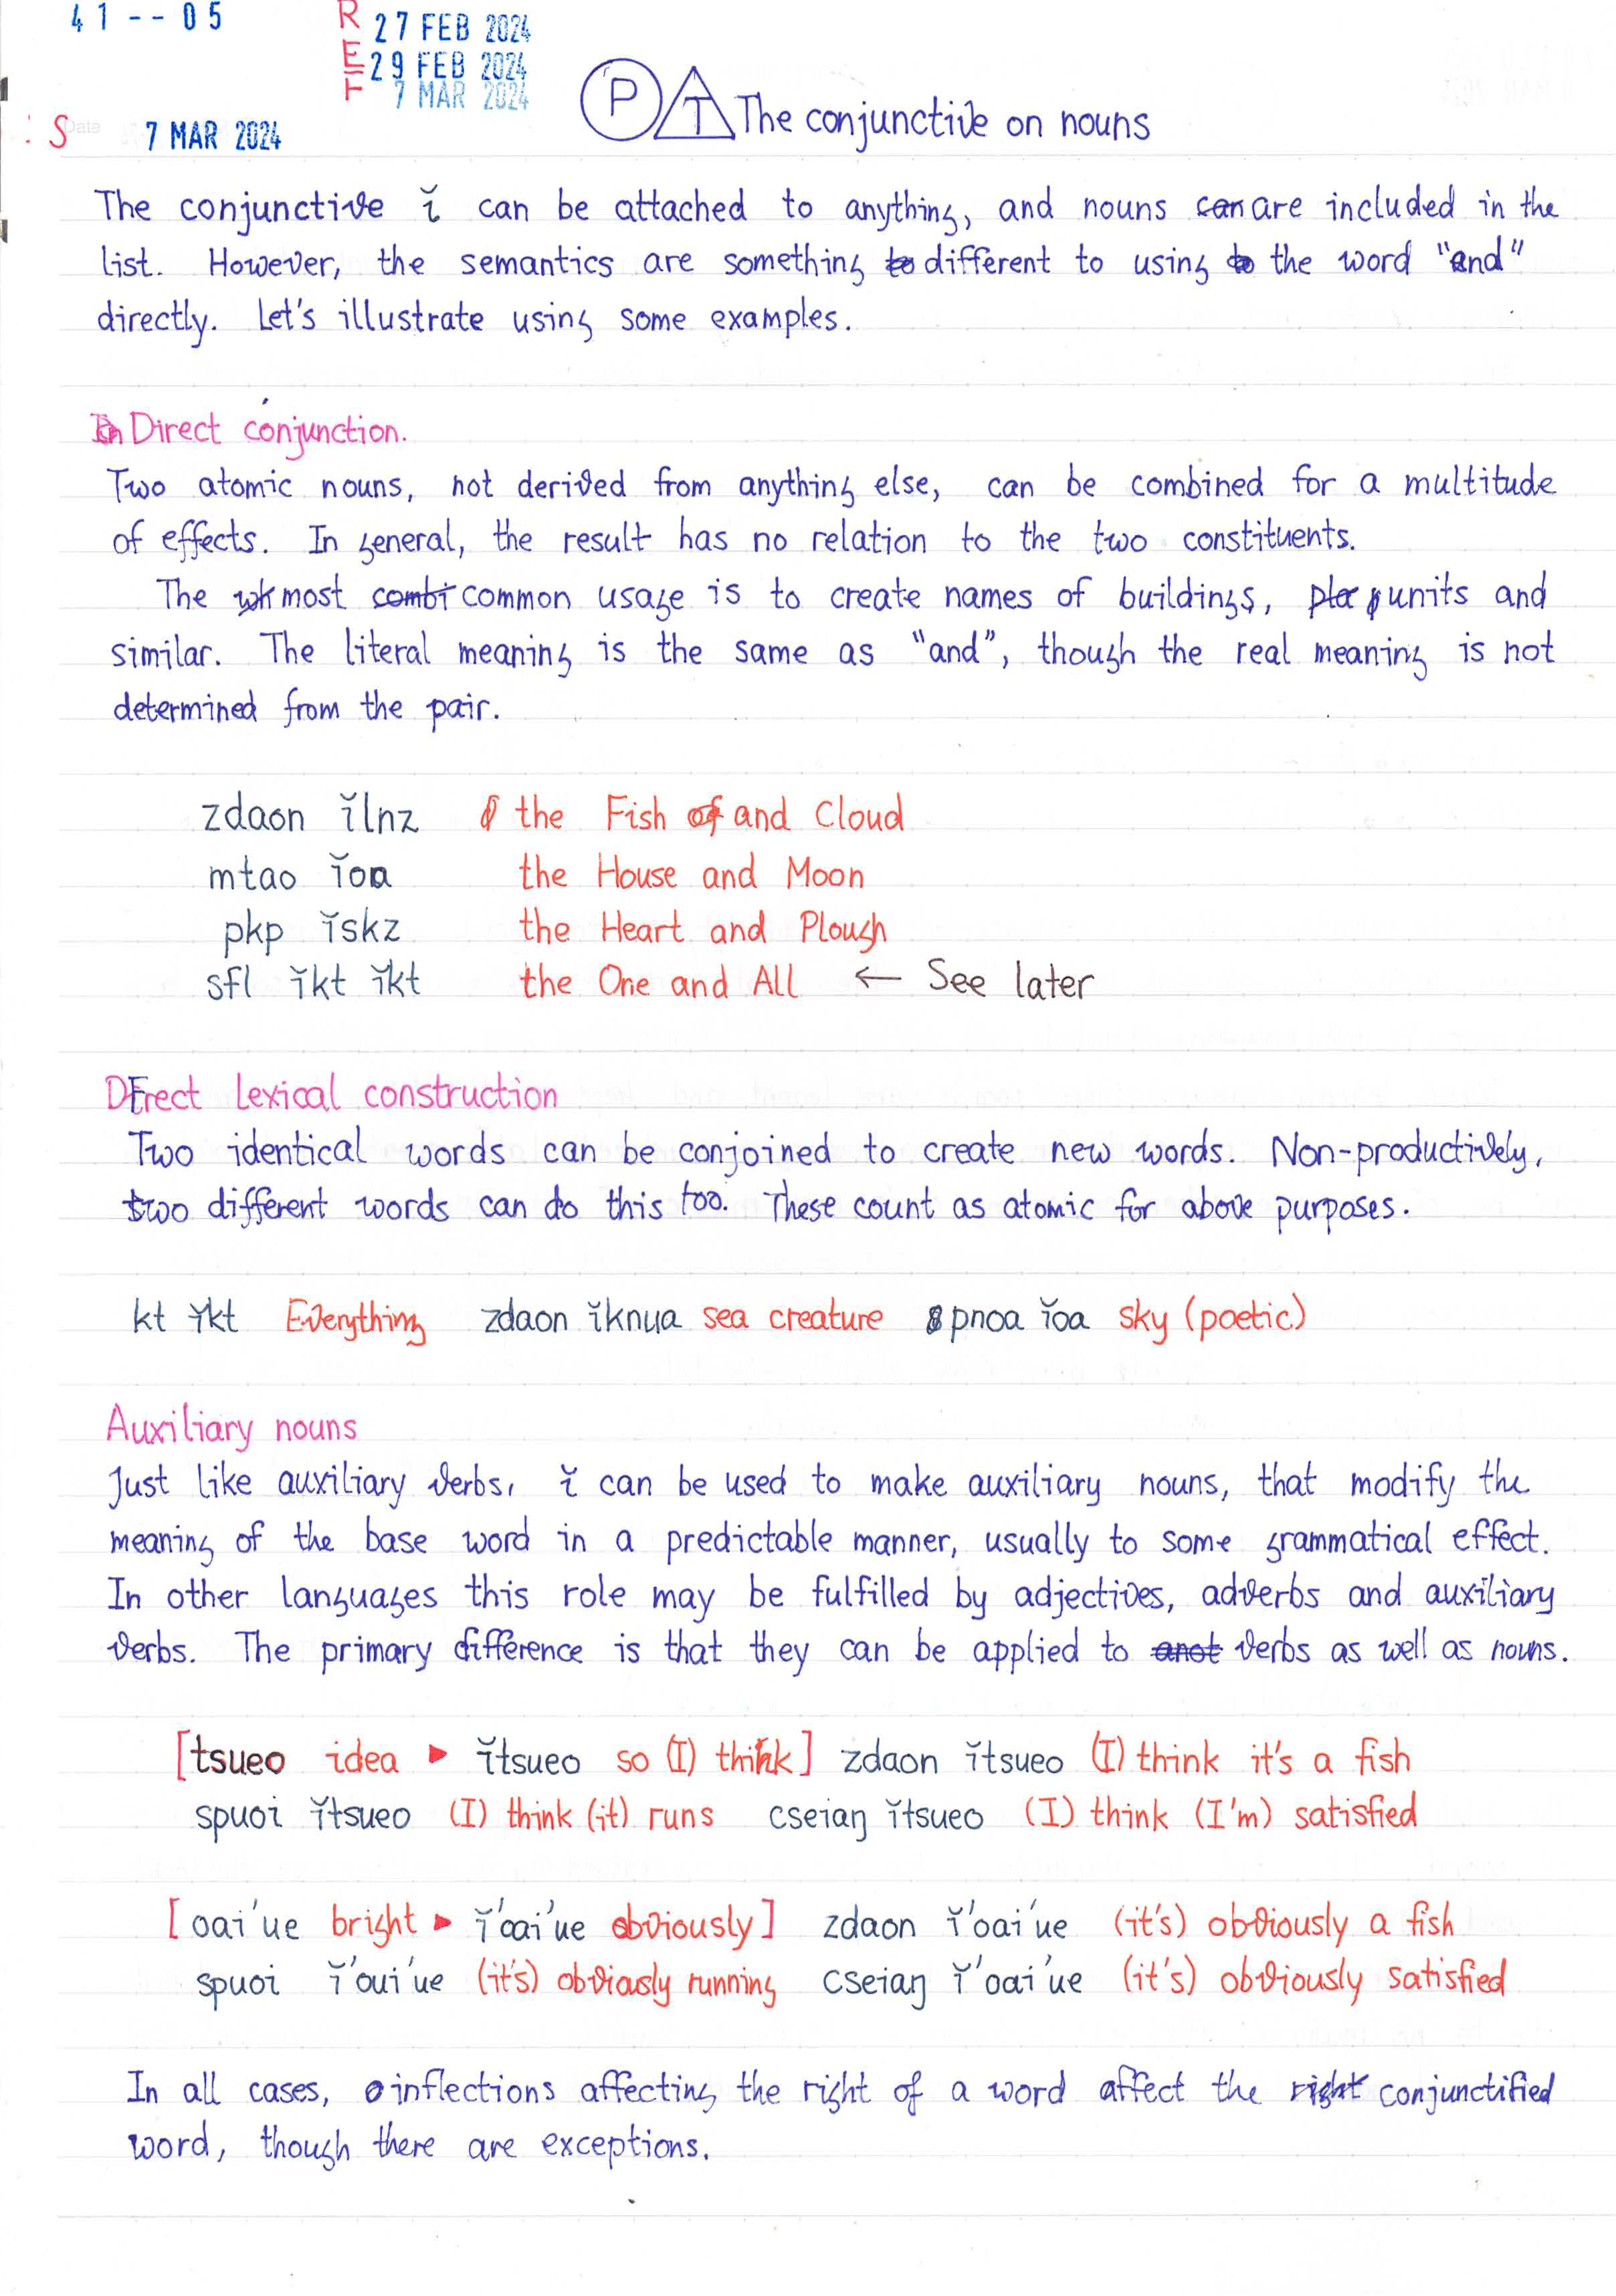 41--05
REF
27 FEB 2024
29 FEB 2024
7 MAR 2024
S Date 7 MAR 2024
P T The conjunctive on nouns
The conjunctive ǐ can be attached to anything, and nouns can are included in the
list. However, the semantics are something to different to using to the word "and"
directly. Let's illustrate using some examples.
In Direct conjunction.
Two atomic nouns, not derived from anything else, can be combined for a multitude
of effects. In general, the result has no relation to the two constituents.
The wh most combi common usage is to create names of buildings, pla units and
similar. The literal meaning is the same as "and", though the real meaning is not
determined from the pair.
zdaon ǐlnz the Fish of and Cloud
mtao ǐoa the House and Moon
pkp ǐskz the Heart and Plough
sfl ǐkt ǐkt the One and All ← See later
Direct Lexical construction
Two identical words can be conjoined to create new words. Non-productively,
two different words can do this too. These count as atomic for above purposes.
kt ǐkt Everything zdaon ǐknua sea creature pnoa ǐoa sky (poetic)
Auxiliary nouns
Just like auxiliary verbs, ǐ can be used to make auxiliary nouns, that modify the
meaning of the base word in a predictable manner, usually to some grammatical effect.
In other languages this role may be fulfilled by adjectives, adverbs and auxiliary
verbs. The primary difference is that they can be applied to anot verbs as well as nouns.
[tsueo idea ▶ ǐtsueo so (I) think] zdaon ǐtsueo (I) think it's a fish
spuoi ǐtsueo (I) think (it) runs cseiaŋ ǐtsueo (I) think (I'm) satisfied
[oai'ue bright ▶ ǐ'oai'ue obviously] zdaon ǐ'oai'ue (it's) obviously a fish
spuoi ǐ'oui'ue (it's) obviously running cseiaŋ ǐ'oai'ue (it's) obviously satisfied
In all cases, inflections affecting the right of a word affect the right conjunctified
word, though there are exceptions.